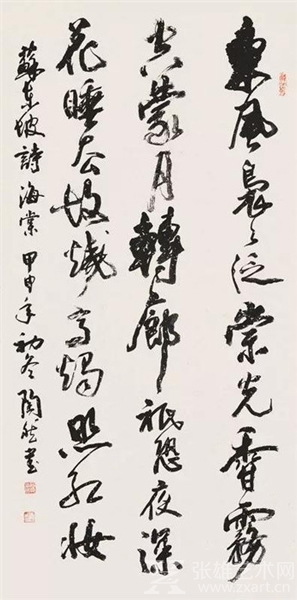 東風裊々泛崇光香霧
空蒙月轉廊祇恐夜深
花睡去故燒高燭照紅妝
蘇東坡詩海棠 甲申年初冬 陶然書
张雄艺术网
zxart.cn